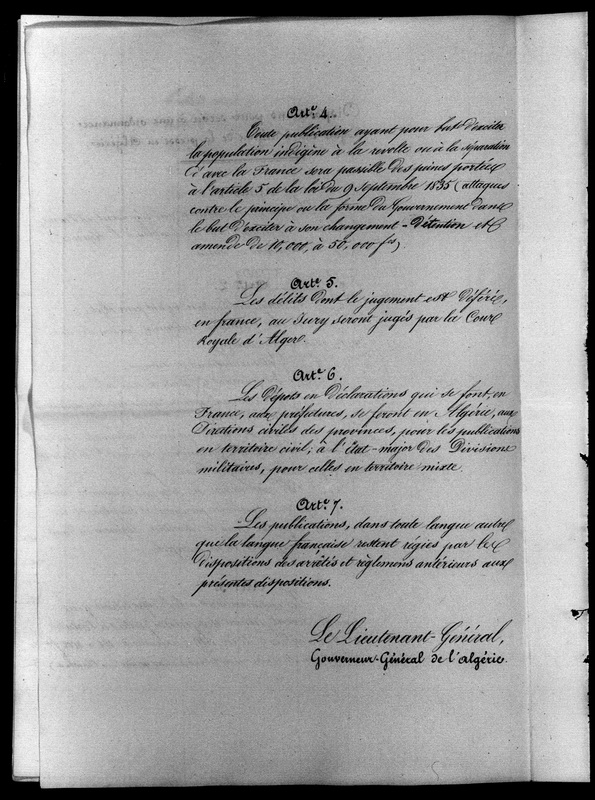 Arte. 4.
Toute publication ayant pour but d'exciter
la population indigène à la revolte ou à la séparation
d'avec la France sera passible des peines portées
à l'article 5 de la loi du 9 septembre 1835 (attaques
contre le principe ou la forme du Gouvernement dans
le but d'exciter à son changement - Détention et
amende de 10,000, à 50,000 frs).
Arte. 5.
Les délits dont le jugement est déféré,
en france, au Jury seront jugés par la Cour
Royale d'Alger.
Arte. 6.
Les dépôts en déclarations qui se font, en
France, aux préfectures, se feront en Algérie, aux
Directions civiles des provinces, pour les publications
en territoire civil; à l'état-major des Divisions
militaires, pour celles en territoire mixte.
Arte. 7.
Les publications, dans toute langue autre
que la langue française restent régies par les
dispositions des arrêtés et règlemens antérieurs aux
présentes dispositions.
Le Lieutenant-Général,
Gouverneur-Général de l'Algérie.